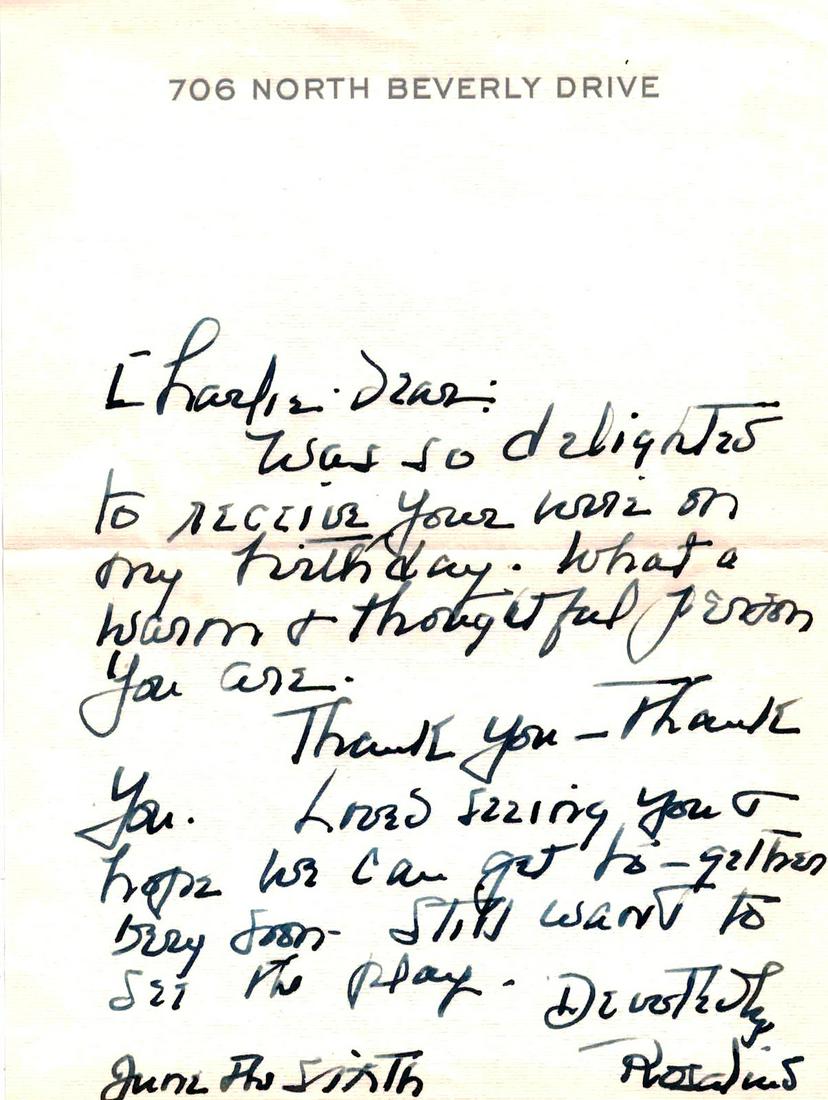 706 NORTH BEVERLY DRIVE
Charlie Dear:
Was so delighted
to receive your wire on
my birthday. What a
warm & thoughtful person
you are.
Thank you – Thank
you. Loved seeing you &
hope we can get to-gether
very soon - Still want to
see the play.
Devotedly
June the Sixth Rosalind